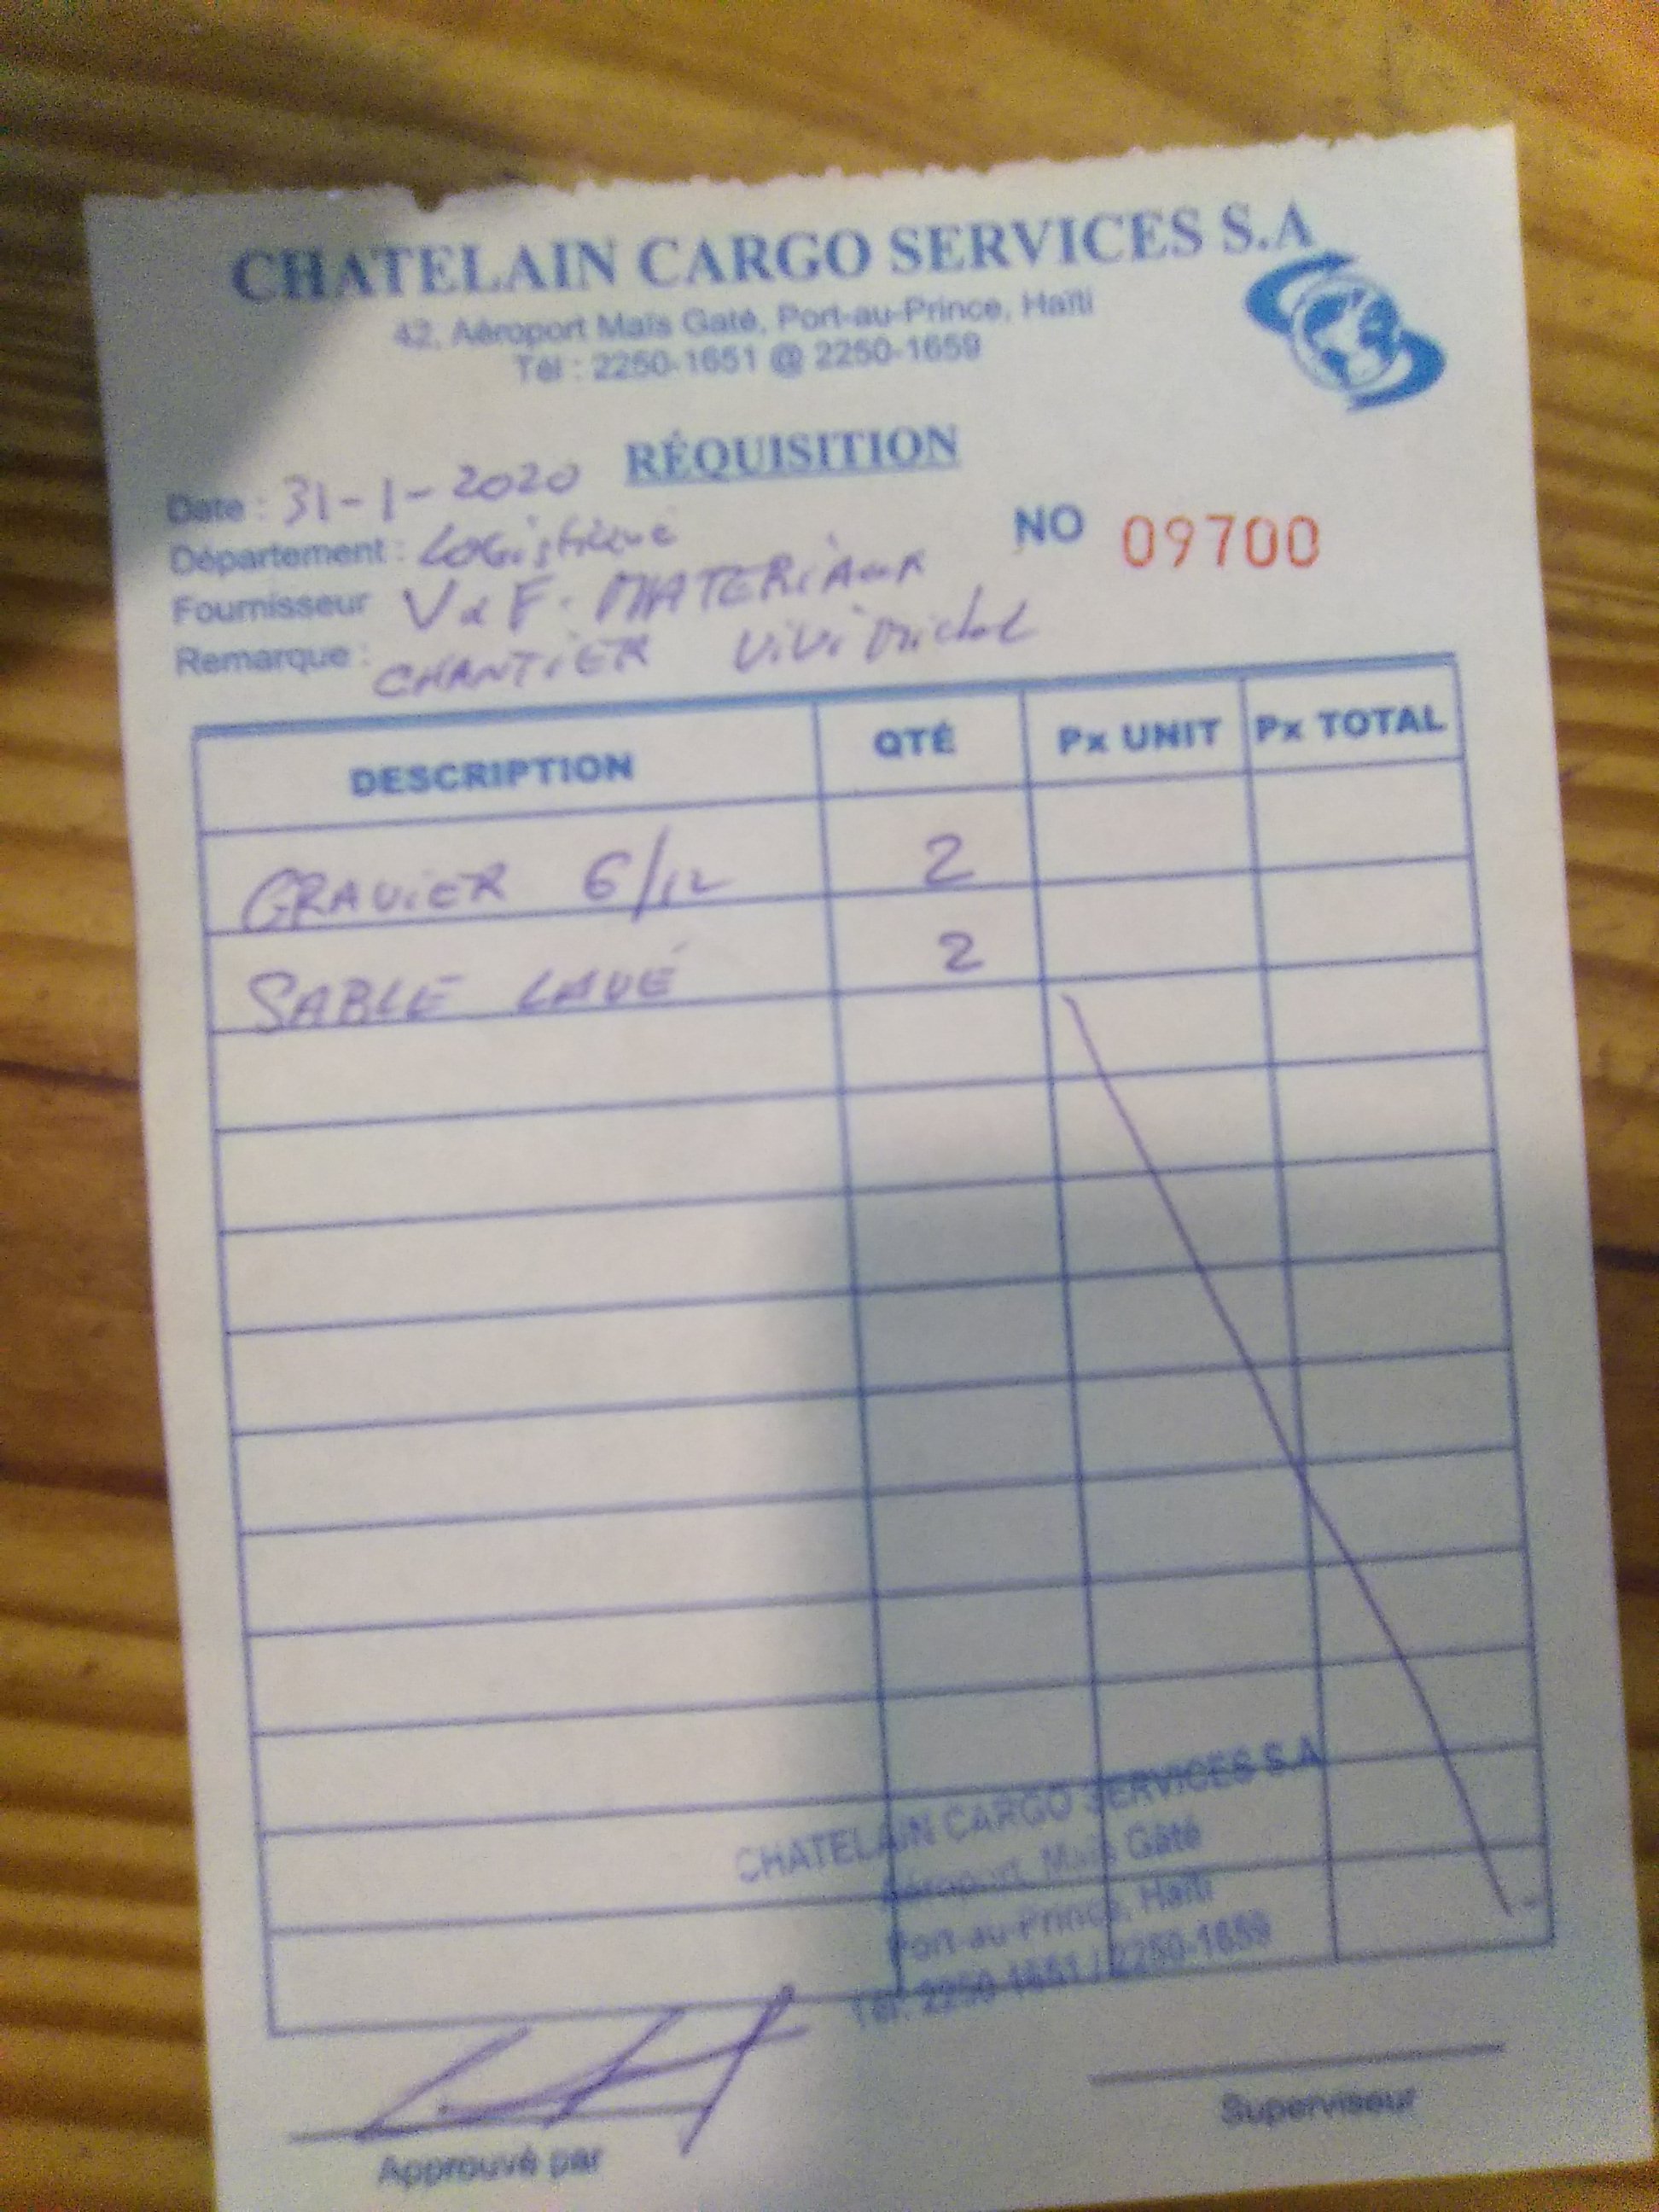 CHATELAIN CARGO SERVICES S.A
42, Aéroport Maïs Gaté, Port-au-Prince, Haïti
Tél : 2250-1651 @ 2250-1659
RÉQUISITION
Date : 31-1-2020
Département : Logistique
NO 09700
Fournisseur V & F. MATERIAUX
Remarque : CHANTIER ViVi Michel
DESCRIPTION QTÉ Px UNIT Px TOTAL
GRAVIER 6/12 2
SABLE LAVÉ 2
CHATELAIN CARGO SERVICES S.A
Aéroport, Maïs Gâté
Port-au-Prince, Haïti
Tél: 2250-1651 / 2250-1659
Approuvé par
Superviseur